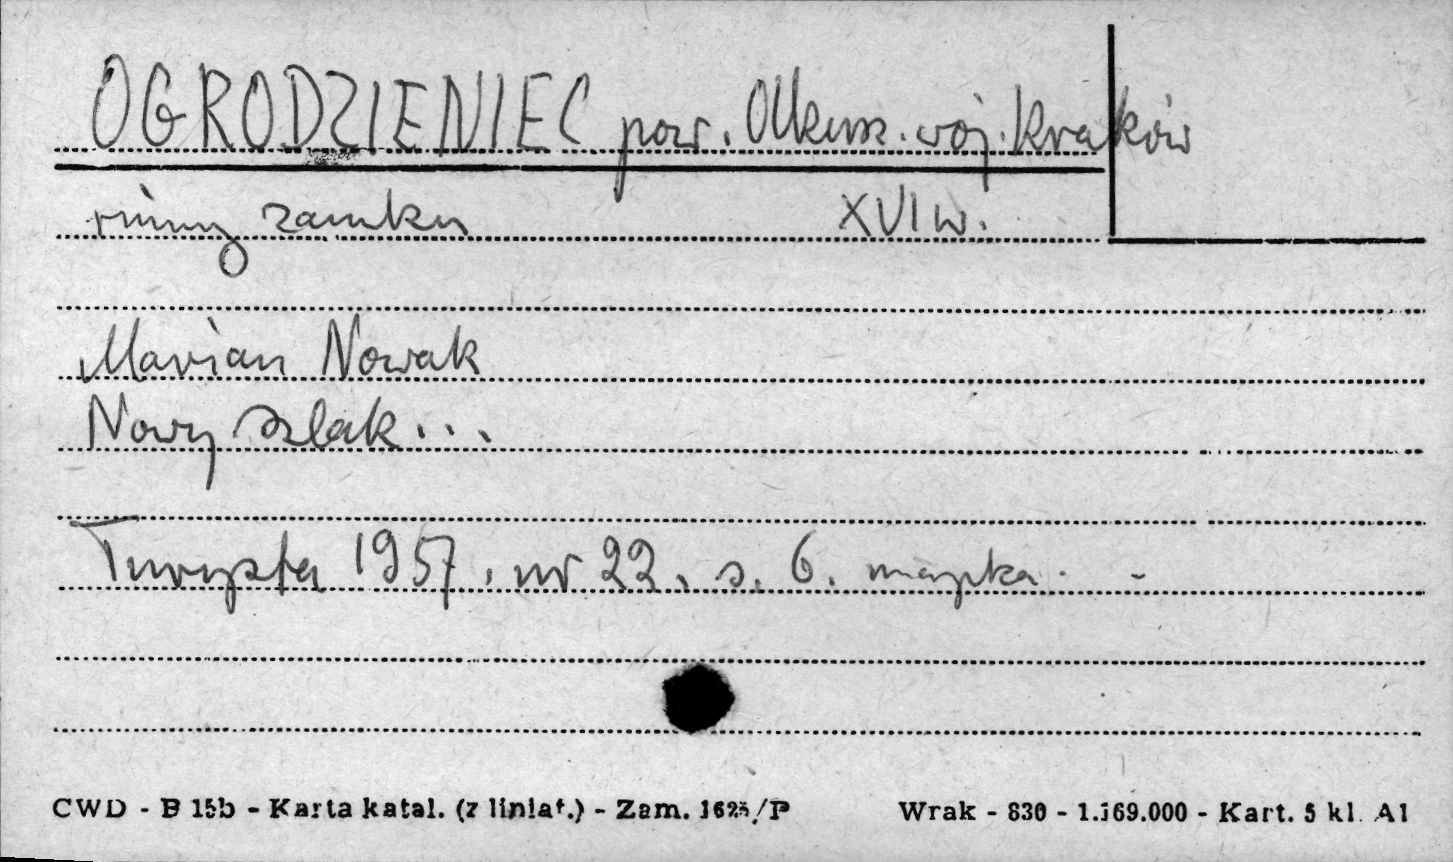 OGRODZIENIEC pow. Olkusz. woj. Kraków
ruiny zamku XVI w.
Marian Nowak
Nowy szlak...
Turysta 1957, nr 22, s. 6. mapka. -
CWD - B 15b - Karta katal. (z liniat.) - Zam. 1625/P Wrak - 830 - 1.169.000 - Kart. 5 kl. A1